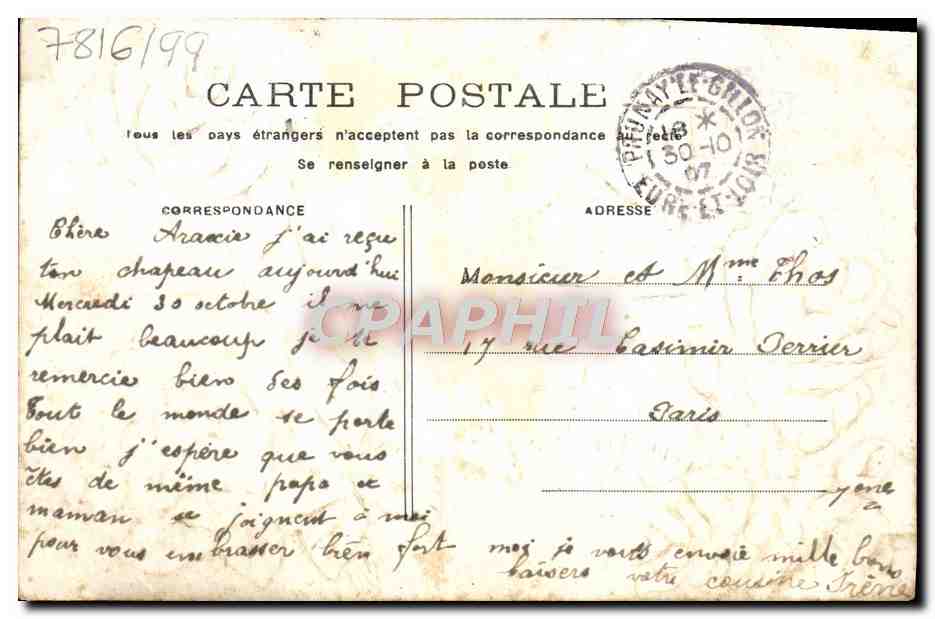 7816/99
CARTE POSTALE
Tous les pays étrangers n'acceptent pas la correspondance au recto
Se renseigner à la poste
PRUNAY-LE-GILLON
18 *
30-10
07
EURE-ET-LOIR
CORRESPONDANCE
Chère Araxcie j'ai reçu
ton chapeau aujourd'hui
Mercredi 30 octobre il me
plait beaucoup je te
remercie bien des fois
Tout le monde se porte
bien j'espère que vous
êtes de même papa et
maman se joignent à moi
pour vous embrasser bien fort moi je vous envoie mille bons
baisers votre cousine Irène
ADRESSE
Monsieur et Mme Thos
17 rue Casimir Perrier
Paris
CPAPHIL